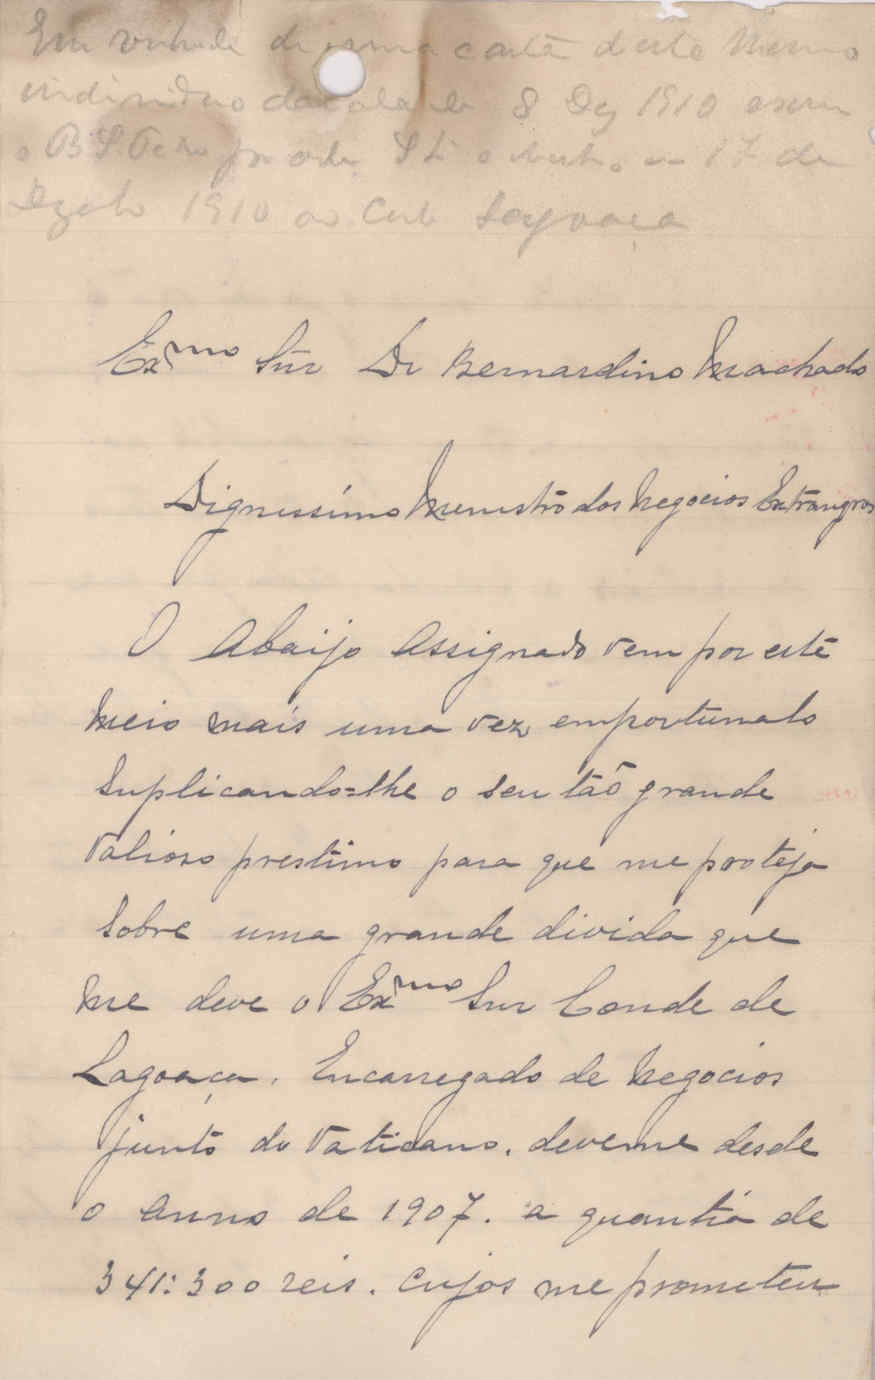 Em virtude de uma carta deste mesmo
individuo datada de 8 Dez 1910
o 17 de
Dezbro 1910 ao Cde Lagoaça
Exmo Snr Dr Bernardino Machado
Dignissímo Menistro dos Negocios Extrangros
O Abaijo Assignado vem por este
Meio mais uma vez emportunalo
Suplicando=lhe o seu tão grande
Valioso prestimo para que me proteja
Sobre uma grande divida que
Me deve o Exmo Snr Conde de
Lagoaça. Encarregado de Negocios
junto do Vaticano. deveme desde
o anno de 1907. a quantia de
341:300 reis. Cujos me prometeu